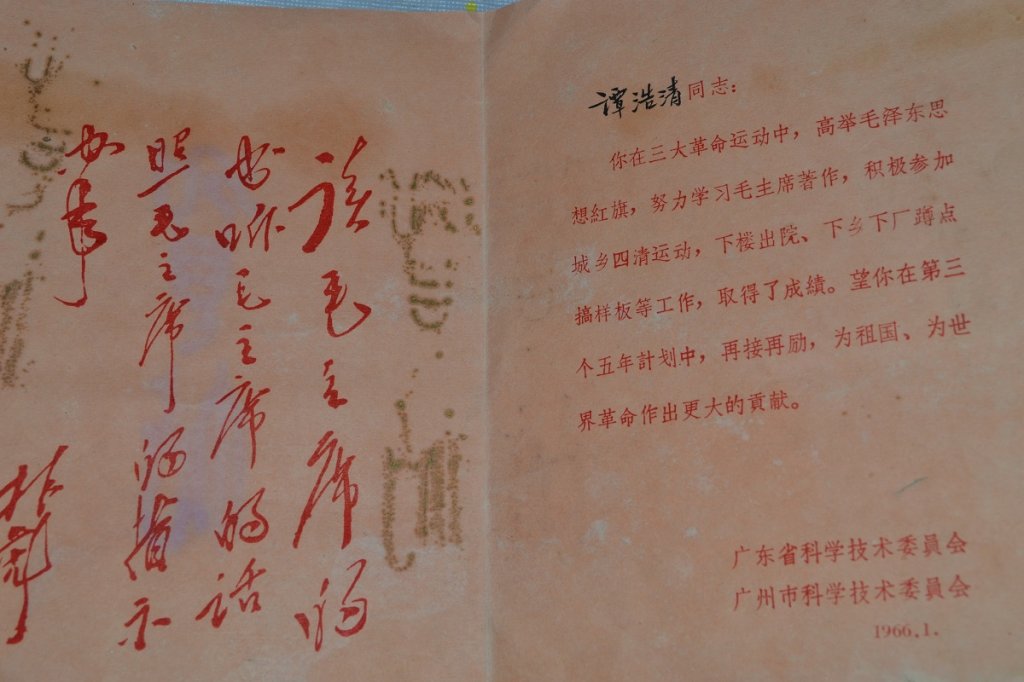 读毛主席的
书听毛主席的话
照毛主席的指示
办事
林彪
谭浩清同志：
你在三大革命运动中，高举毛泽东思
想紅旗，努力学习毛主席著作，积极参加
城乡四清运动，下楼出院、下乡下厂蹲点
搞样板等工作，取得了成績。望你在第三
个五年計划中，再接再励，为祖国、为世
界革命作出更大的貢献。
广东省科学技术委員会
广州市科学技术委員会
1966.1.